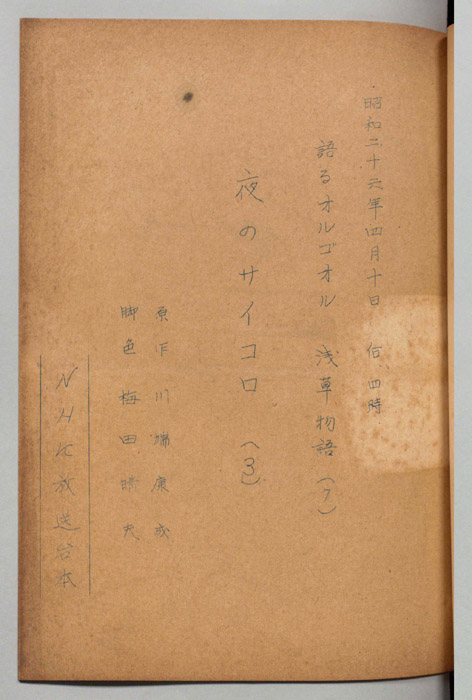 昭和二十六年四月十日 后、四時
語るオルゴオル 浅草物語（7）
夜のサイコロ（3）
原作 川端康成
脚色 梅田晴夫
NHK放送台本